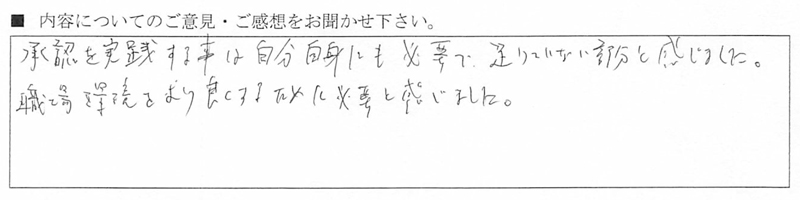 ■ 内容についてのご意見・ご感想をお聞かせ下さい。
承認を実践する事は自分自身にも必要で、足りていない部分と感じました。
職場環境をより良くするために必要と感じました。